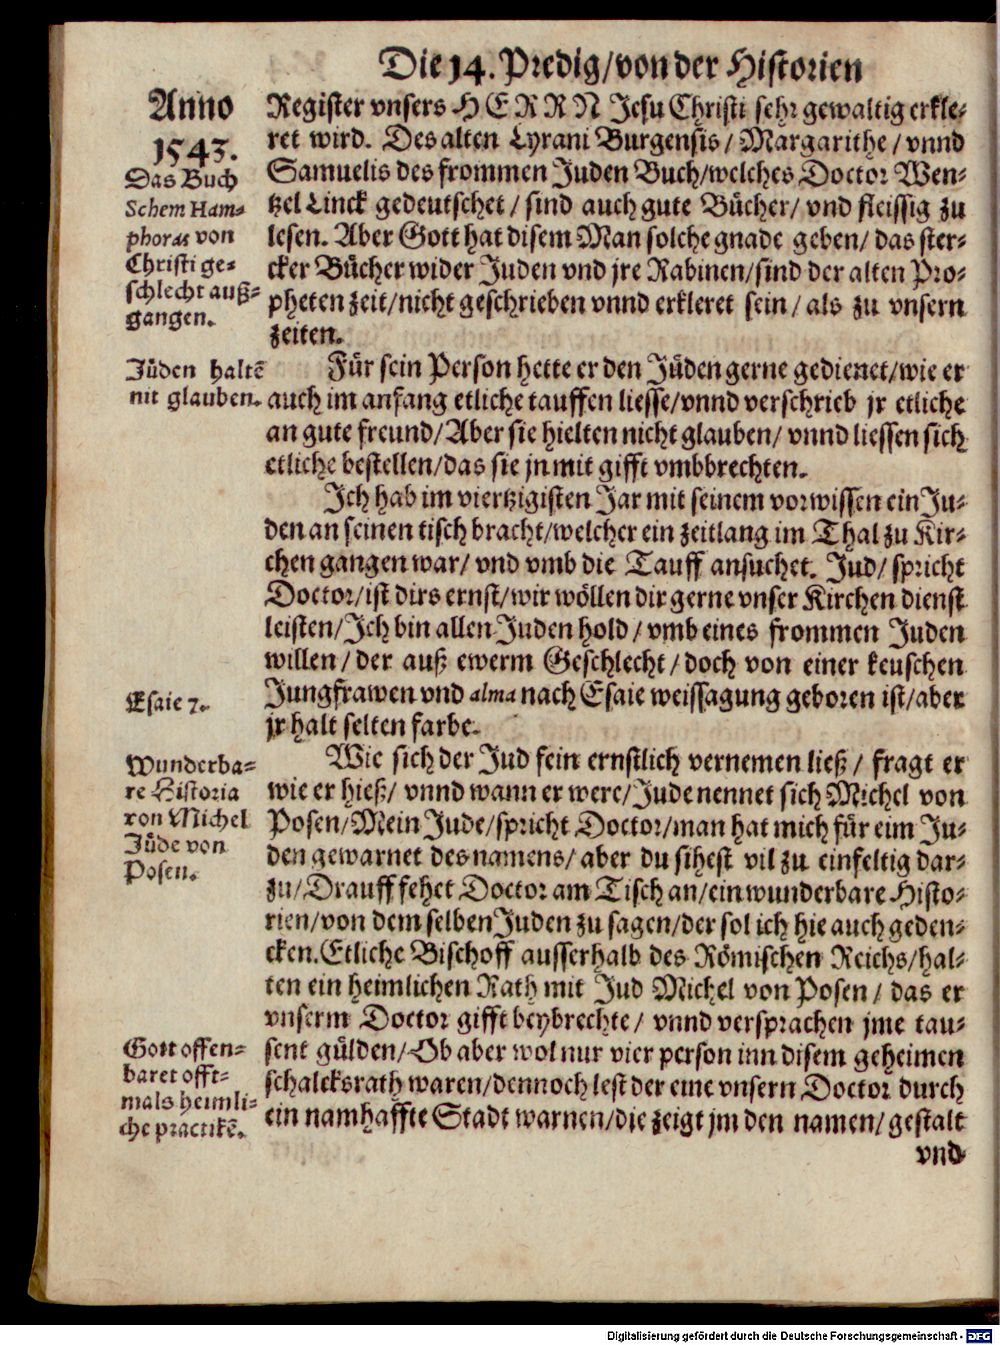 Die 14. Predig/von der Historien
Anno
1543.
Das Buch
Schem Ham-
phoras von
Christi ge-
schlecht auß-
gangen.
Register vnsers HERRN Jesu Christi sehr gewaltig erkle-
ret wird. Des alten Lyrani Burgensis/ Margarithe/ vnnd
Samuelis des frommen Juden Buch/welches Doctor Wen-
tzel Linck gedeutschet/ sind auch gute Bücher/ vnd fleissig zu
lesen. Aber Gott hat disem Man solche gnade geben/ das ster-
cker Bücher wider Juden vnd jre Rabinen/sind der alten Pro-
pheten zeit/nicht geschrieben vnnd erkleret sein/ als zu vnsern
zeiten.
Jüden haltẽ
nit glauben.
Für sein Person hette er den Jüden gerne gedienet/wie er
auch im anfang etliche tauffen liesse/vnnd verschrieb jr etliche
an gute freund/Aber sie hielten nicht glauben/ vnnd liessen sich
etliche bestellen/das sie jn mit gifft vmbbrechten.
Ich hab im viertzigisten Jar mit seinem vorwissen ein Ju-
den an seinen tisch bracht/welcher ein zeitlang im Thal zu Kir-
chen gangen war/ vnd vmb die Tauff ansuchet. Jud/ spricht
Doctor/ist dirs ernst/wir wöllen dir gerne vnser Kirchen dienst
leisten/Ich bin allen Juden hold/ vmb eines frommen Juden
willen/ der auß ewerm Geschlecht/ doch von einer keuschen
Jungfrawen vnd alma nach Esaie weissagung geboren ist/aber
jr halt selten farbe.
Esaie 7.
Wunderba-
re Historia
von Michel
Jüde von
Posen.
Wie sich der Jud fein ernstlich vernemen ließ/ fragt er
wie er hieß/ vnnd wann er were/Jude nennet sich Michel von
Posen/Mein Jude/spricht Doctor/man hat mich für eim Ju-
den gewarnet des namens/ aber du sihest vil zu einfeltig dar-
zu/Drauff fehet Doctor am Tisch an/ein wunderbare Histo-
rien/von dem selben Juden zu sagen/der sol ich hie auch geden-
cken. Etliche Bischoff ausserhalb des Römischen Reichs/hal-
ten ein heimlichen Rath mit Jud Michel von Posen/ das er
vnserm Doctor gifft beybrechte/ vnnd versprachen jme tau-
sent gülden/Ob aber wol nur vier person inn disem geheimen
schalcksrath waren/dennoch lest der eine vnsern Doctor durch
ein namhaffte Stadt warnen/die zeigt jm den namen/gestalt
vnd
Gott offen-
baret offt-
mals heimli-
che practikẽ.
Digitalisierung gefördert durch die Deutsche Forschungsgemeinschaft - DFG